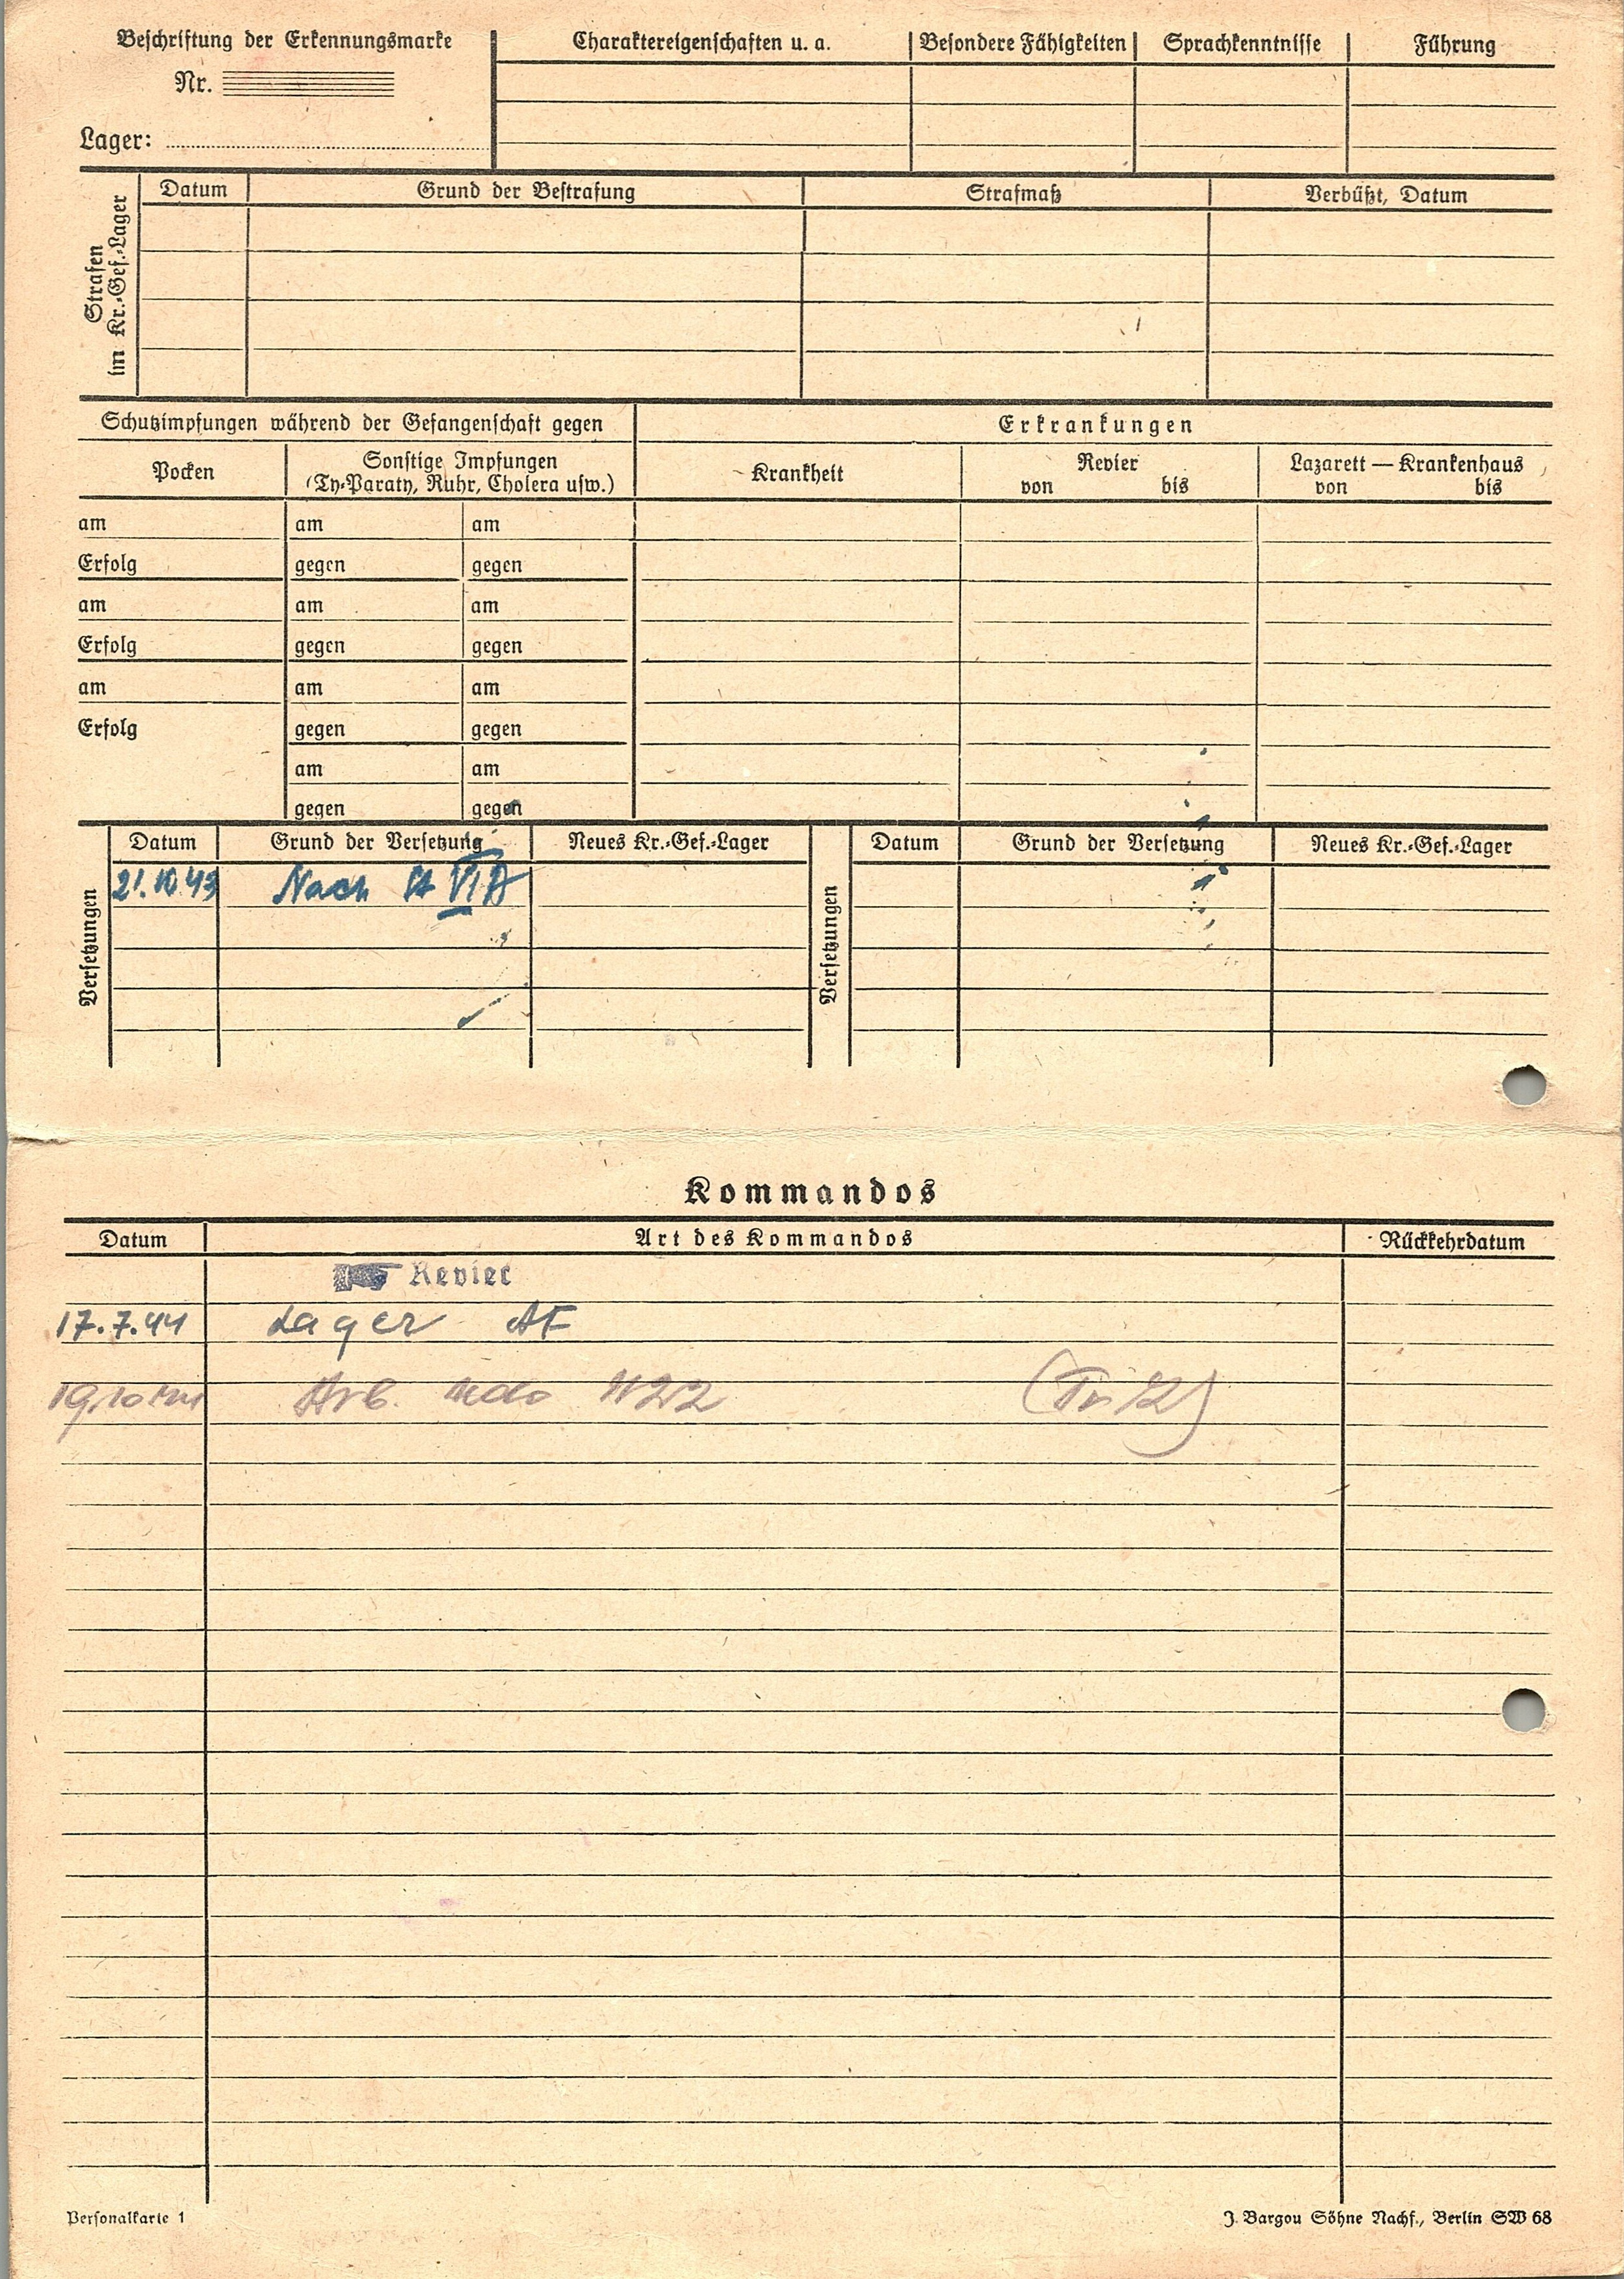 Beschriftung der Erkennungsmarke
Charaktereigenschaften u. a.
Besondere Fähigkeiten
Sprachkenntnisse
Führung
Nr.
Lager:
Strafen
im Kr.-Gef.-Lager
Datum
Grund der Bestrafung
Strafmaß
Verbüßt, Datum
Schutzimpfungen während der Gefangenschaft gegen
Erkrankungen
Pocken
Sonstige Impfungen
(Ty-Paraty, Ruhr, Cholera usw.)
Krankheit
Revier
von bis
Lazarett — Krankenhaus
von bis
am am am
Erfolg gegen gegen
am am am
Erfolg gegen gegen
am am am
Erfolg gegen gegen
am am
gegen gegen
Versetzungen
Datum
Grund der Versetzung
Neues Kr.-Gef.-Lager
Versetzungen
Datum
Grund der Versetzung
Neues Kr.-Gef.-Lager
21.10.43 Nach St VI A
Kommandos
Datum
Art des Kommandos
Rückkehrdatum
Revier
17.7.44 Lager AF
Arb. Kdo 1122
Personalkarte 1
J. Bargou Söhne Nachf., Berlin SW 68